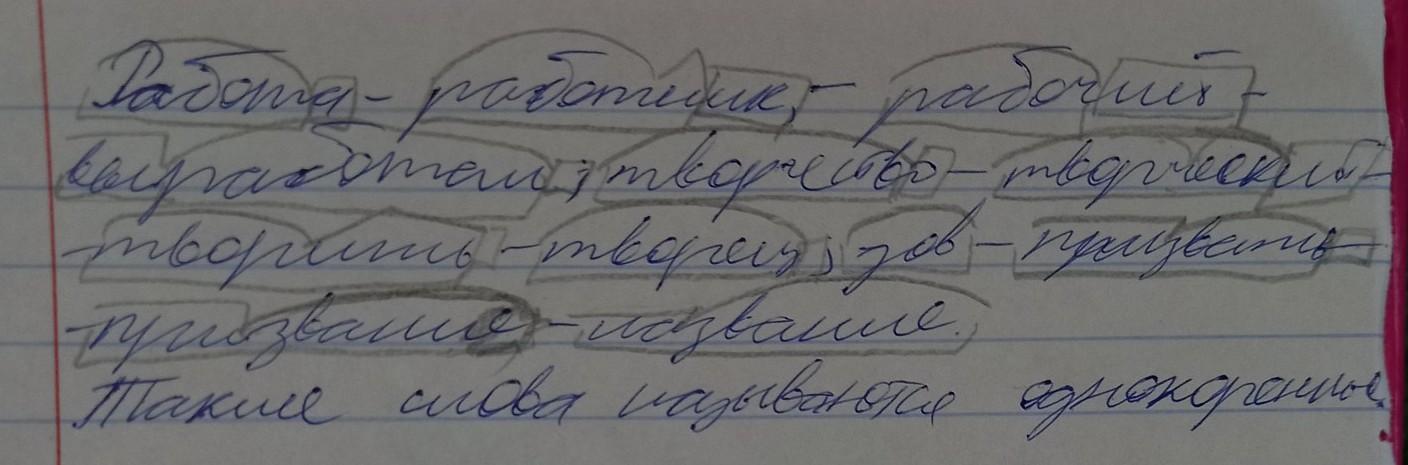 Работа - работник, - рабочий -
выработали; творчество - творческий -
- творить - творец, зов - призвать -
- призвание - название.
Такие слова называются однокоренные.